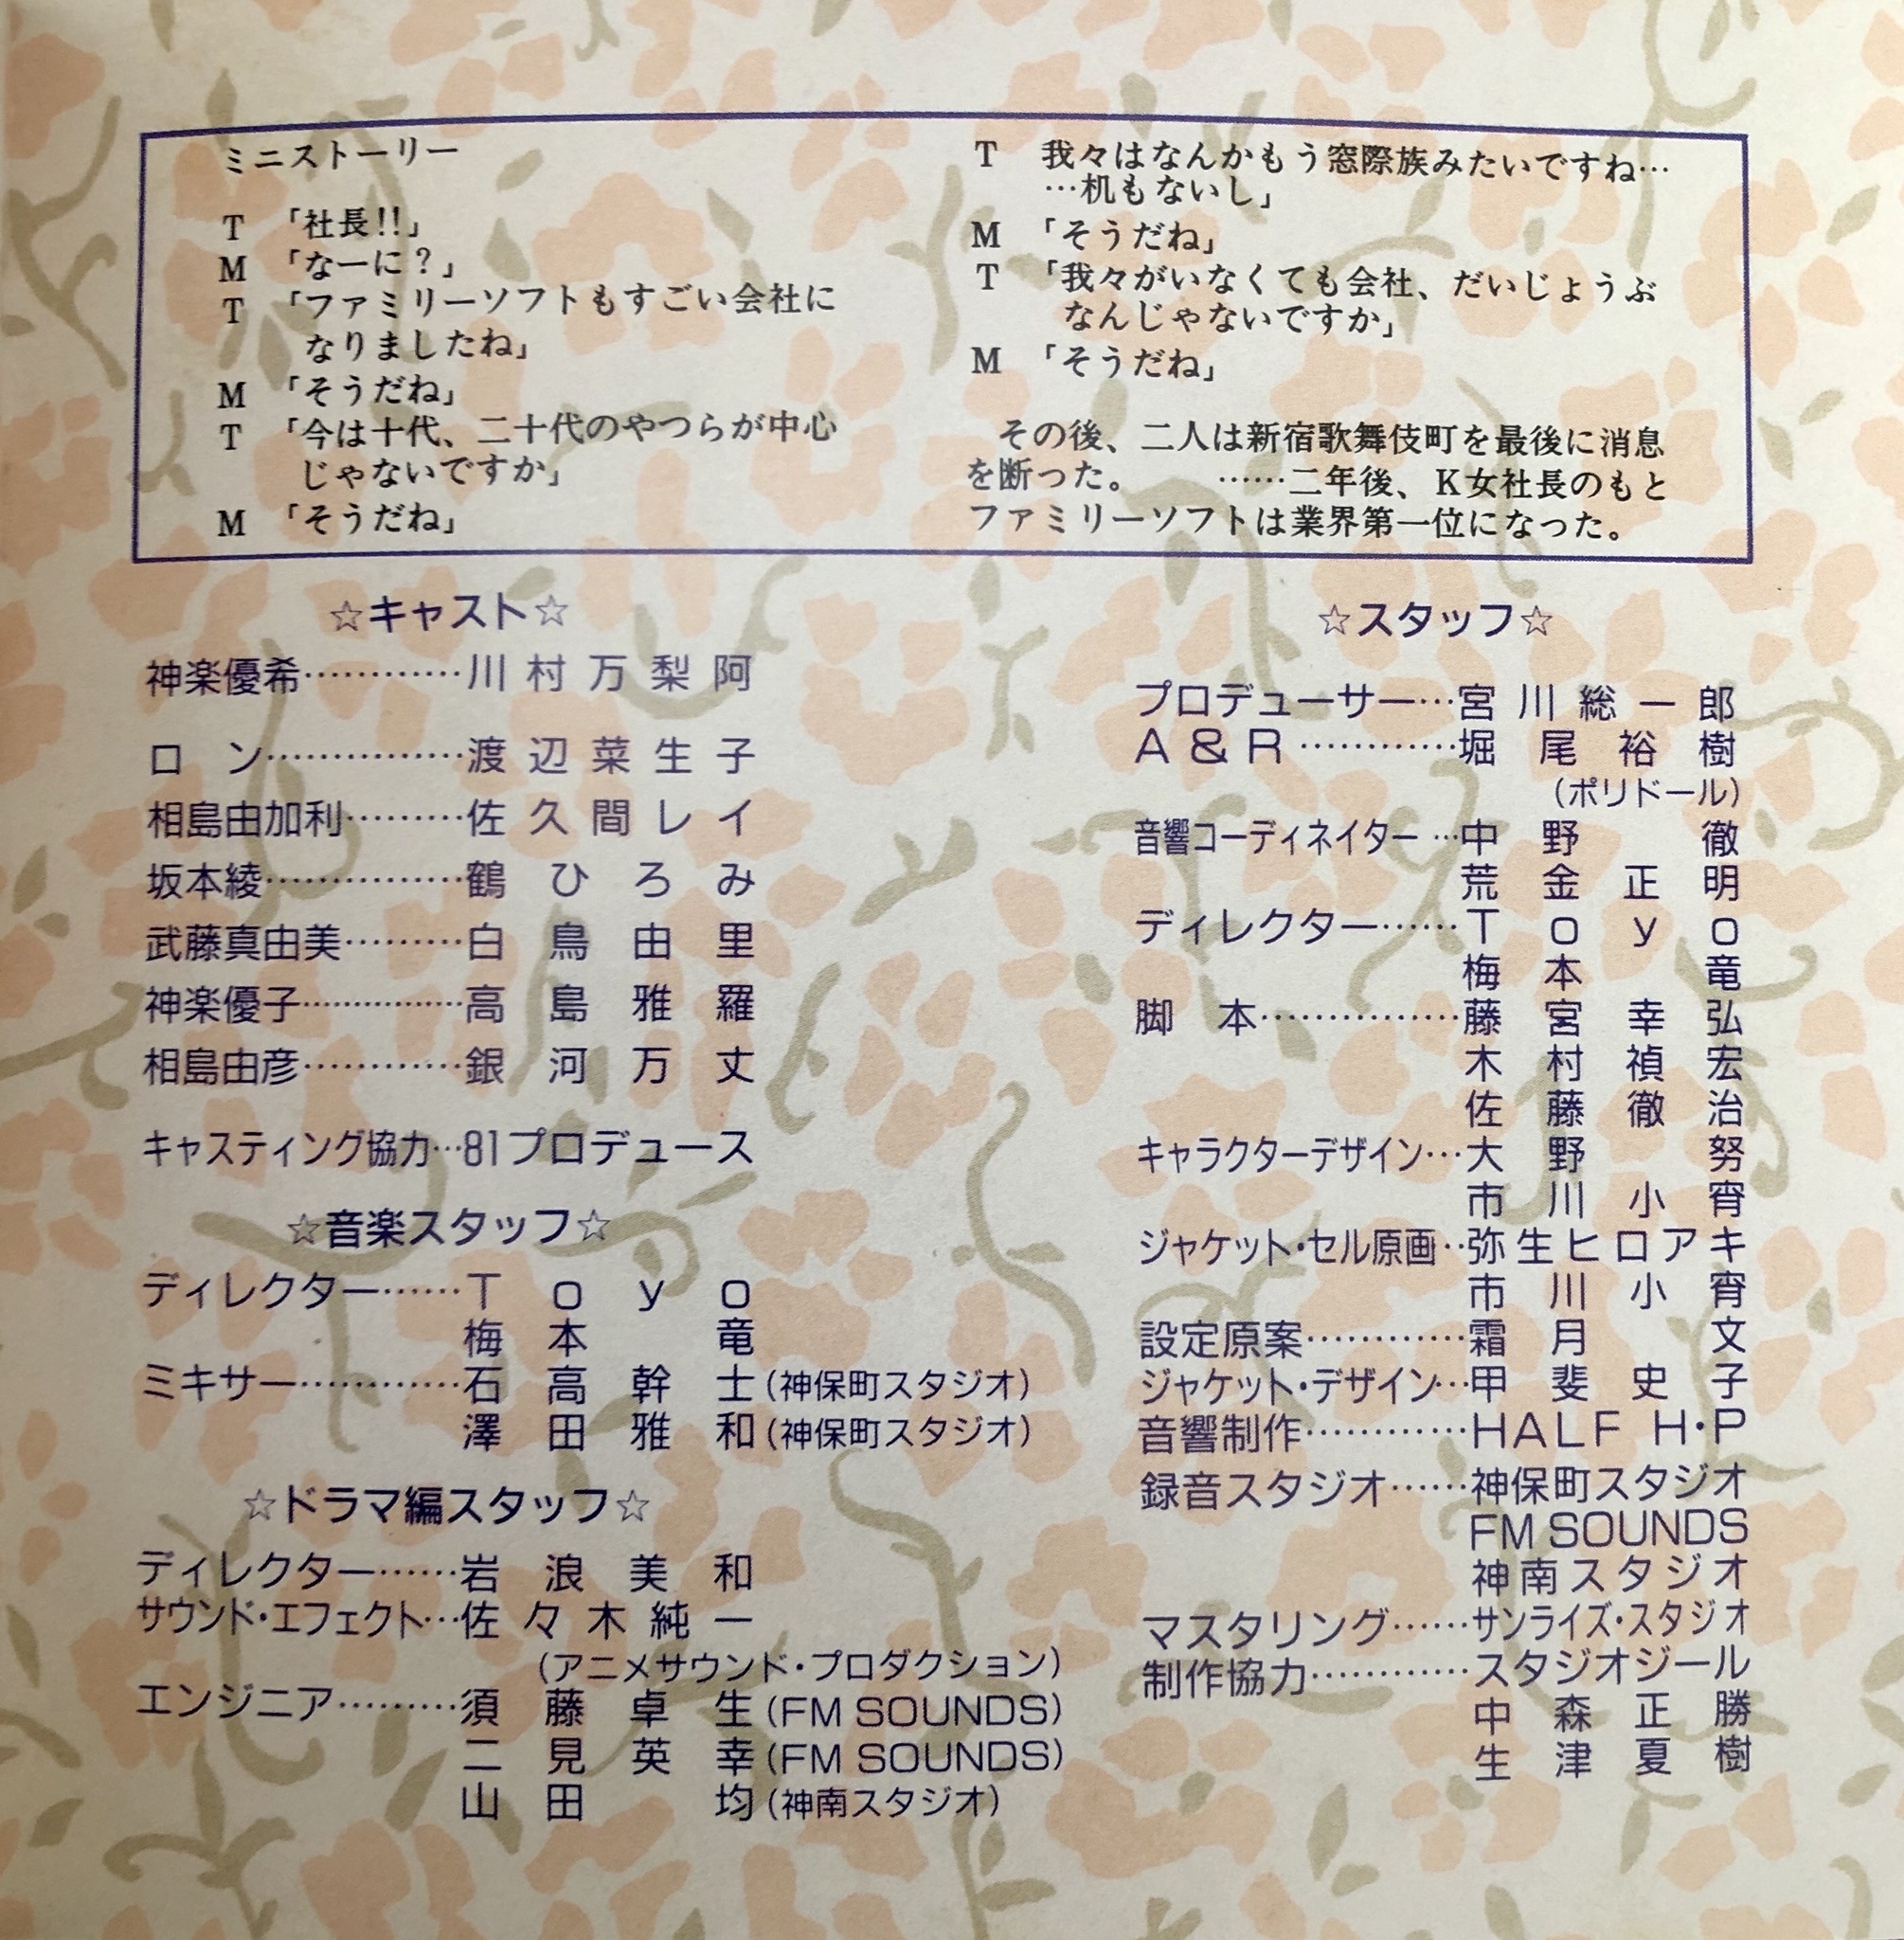 ミニストーリー
T 「社長!!」
M 「なーに?」
T 「ファミリーソフトもすごい会社に
なりましたね」
M 「そうだね」
T 「今は十代、二十代のやつらが中心
じゃないですか」
M 「そうだね」
T 我々はなんかもう窓際族みたいですね…
…机もないし」
M 「そうだね」
T 「我々がいなくても会社、だいじょうぶ
なんじゃないですか」
M 「そうだね」
その後、二人は新宿歌舞伎町を最後に消息
を断った。 ……二年後、K女社長のもと
ファミリーソフトは業界第一位になった。
☆キャスト☆
神楽優希…………川村万梨阿
ロ ン……………渡辺菜生子
相島由加利………佐久間レイ
坂本綾……………鶴ひろみ
武藤真由美………白鳥由里
神楽優子……………高島雅羅
相島由彦…………銀河万丈
キャスティング協力…81プロデュース
☆音楽スタッフ☆
ディレクター……Toyo
梅本 竜
ミキサー…………石高幹士(神保町スタジオ)
澤田雅和(神保町スタジオ)
☆ドラマ編スタッフ☆
ディレクター……岩浪美和
サウンド・エフェクト…佐々木純一
(アニメサウンド・プロダクション)
エンジニア………須藤卓生(FM SOUNDS)
二見英幸(FM SOUNDS)
山田 均(神南スタジオ)
☆スタッフ☆
プロデューサー…宮川総一郎
A & R …………堀尾裕樹
(ポリドール)
音響コーディネイター …中野 徹
荒金正明
ディレクター……Toyo
梅本 竜
脚 本……………藤宮幸弘
木村禎宏
佐藤徹治
キャラクターデザイン…大野 努
市川小宵
ジャケット・セル原画‥弥生ヒロアキ
市川小宵
設定原案…………霜月 文
ジャケット・デザイン…甲斐史子
音響制作…………HALF H・P
録音スタジオ……神保町スタジオ
FM SOUNDS
神南スタジオ
マスタリング……サンライズ・スタジオ
制作協力…………スタジオジール
中森正勝
生津夏樹